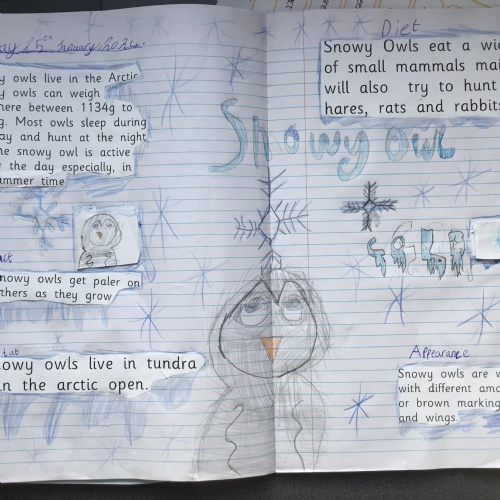 5th January 2024.
owls live in the Arctic
owls can weigh
here between 1134g to
Most owls sleep during
and hunt at the night
snowy owl is active
the day especially, in
time
owls get paler on
as they grow
owls live in tundra
in the arctic open.
Snowy owl
COLD
Diet
Snowy Owls eat a
of small mammals
will also try to hunt
hares, rats and rabbits
Appearance
Snowy owls are
with different
or brown marking
and wings.